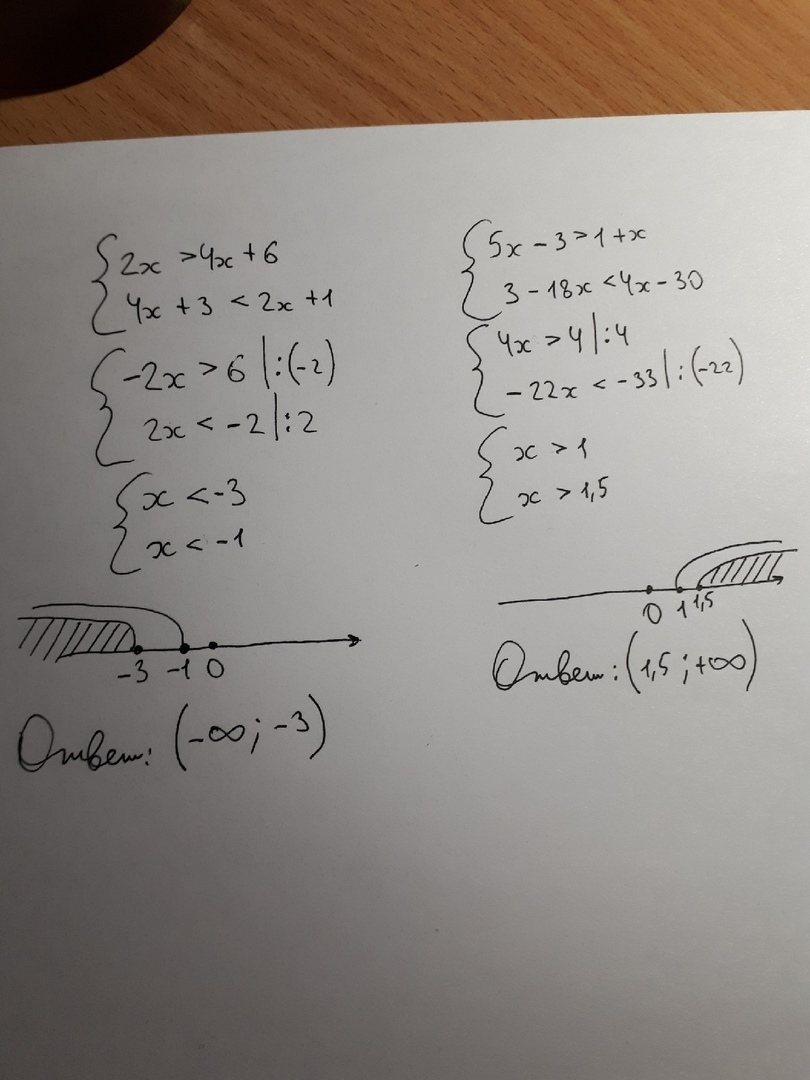 2x > 4x + 6
4x + 3 < 2x + 1
-2x > 6 | : (-2)
2x < -2 | : 2
x < -3
x < -1
-3 -1 0
Ответ: (-∞; -3)
5x - 3 > 1 + x
3 - 18x < 4x - 30
4x > 4 | : 4
-22x < -33 | : (-22)
x > 1
x > 1,5
0 1 1,5
Ответ: (1,5; +∞)